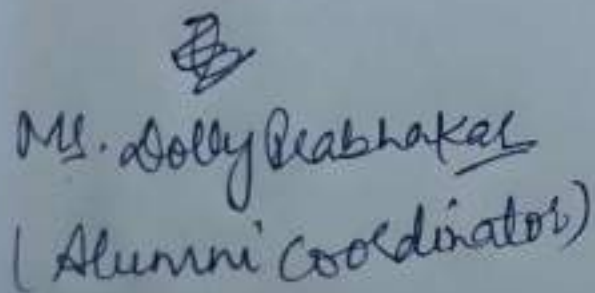 Ms. Dolly Prabhakar
(Alumni Coordinator)